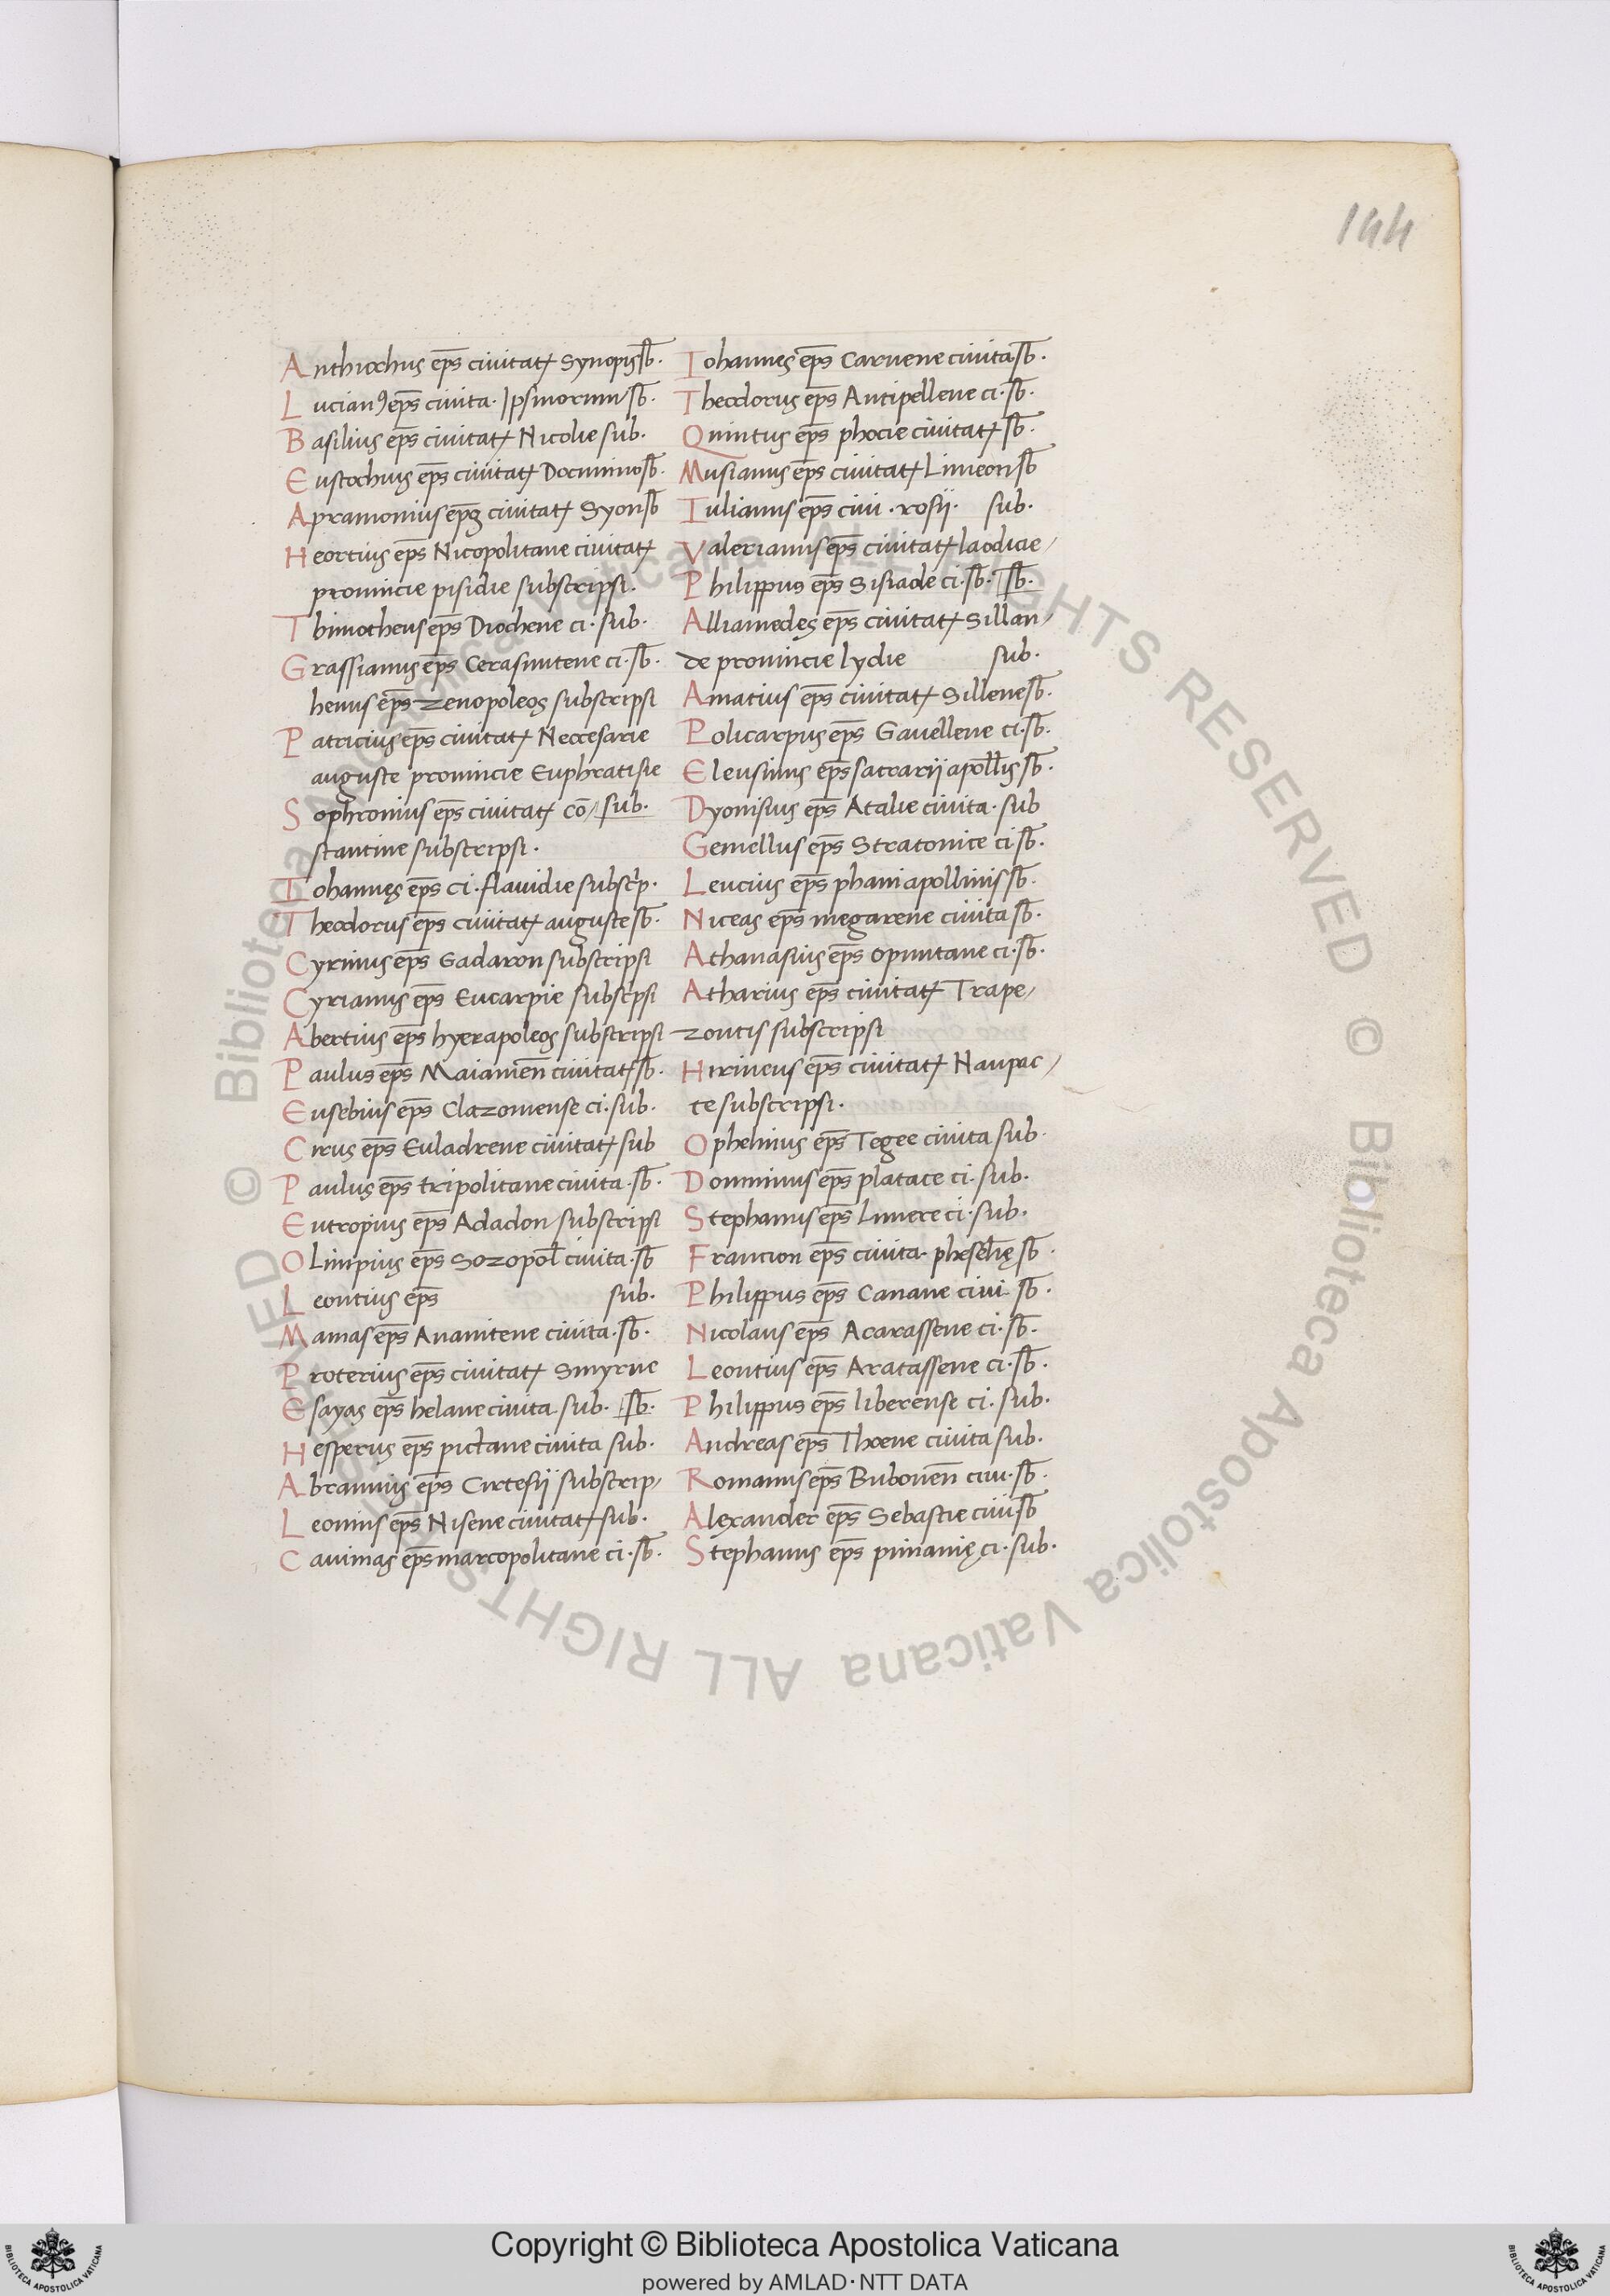 144
Anthiochus eps̄ ciuitatꝭ Synopis sb̄.
Lucianꝰ eps̄ ciuita. Ipsinorum sb̄.
Basilius eps̄ ciuitatꝭ Nicolie sub.
Eustochius eps̄ ciuitatꝭ Docimino sb̄.
Apramonius epō ciuitatꝭ Syon sb̄
Heortius eps̄ Nicopolitane ciuitatꝭ
prouincie pisidie subscripsi.
Thimotheus eps̄ Diochene ci. sub.
Grassianus eps̄ Cerasuntene ci. sb̄.
henus eps̄ Zenopoleos subscripsi
Patricius eps̄ ciuitatꝭ Neccesarie
auguste prouincie Euphratisie
Sophronius eps̄ ciuitatꝭ cō/ sub.
stantine subscripsi.
Iohannes eps̄ ci. flauidie subscrip.
Theodorus eps̄ ciuitatꝭ auguste sb̄.
Cyrinus eps̄ Gadaron subscripsi
Cyrianus eps̄ Eucarpie subscpsi
Abertius eps̄ hyerapoleos subscripsi
Paulus eps̄ Maiamen̄ ciuitatꝭ sb̄.
Eusebius eps̄ Clazomense ci. sub.
Cirus eps̄ Euladrene ciuitatꝭ sub
Paulus eps̄ tripolitane ciuita. sb̄.
Eutropius eps̄ Adadon subscripsi
Olimpius eps̄ Sozopol̄ ciuita. sb̄
Leontius eps̄ sub.
Mamas eps̄ Ananitene ciuita. sb̄.
Proterius eps̄ ciuitatꝭ Smyrne
Esayas eps̄ helane ciuita. sub. sb̄.
Hesperus eps̄ pictane ciuita sub.
Abramius eps̄ Cirtesij subscrip/
Leonius eps̄ Nisene ciuitatꝭ sub.
Cauimas eps̄ marcopolitane ci. sb̄.
Iohannes eps̄ Caruene ciuita sb̄.
Theodorus eps̄ Antipellene ci. sb̄.
Quintus eps̄ phocie ciuitatꝭ sb̄.
Musianus eps̄ ciuitatꝭ Limeon sb̄
Iulianus eps̄ ciui. rosij. sub.
Valerianus eps̄ ciuitatꝭ laodicie/
Philippus eps̄ Sisiade ci. sb̄. sb̄.
Alliamedes eps̄ ciuitatꝭ Sillan/
de prouincie lydie sub.
Amatius eps̄ ciuitatꝭ Sillene sb̄.
Policarpus eps̄ Gauellene ci. sb̄.
Eleusinus eps̄ satrarij apoll̄is sb̄.
Dyonisius eps̄ Atalie ciuita. sub
Gemellus eps̄ Stratonice ci sb̄.
Leucius eps̄ phani apollinis sb̄.
Niceas eps̄ megarene ciuita sb̄.
Athanasius eps̄ opuntane ci. sb̄.
Atharius eps̄ ciuitatꝭ Trape/
zontis subscripsi
Hirineus eps̄ ciuitatꝭ Naupac/
te subscripsi.
Ophelinius eps̄ Tegee ciuita sub.
Domninus eps̄ platace ci. sub.
Stephanus eps̄ Limere ci. sub.
Francion eps̄ ciuita. phesel̄ię sb̄.
Philippus eps̄ Canane ciui. sb̄.
Nicolaus eps̄ Acarassene ci. sb̄.
Leontius eps̄ Aratassene ci. sb̄.
Philippus eps̄ liberense ci. sub.
Andreas eps̄ Thoene ciuita sub.
Romanus eps̄ Bubonen̄ ciui. sb̄.
Alexander eps̄ Sebastie ciui sb̄
Stephanus eps̄ pimanię ci. sub.
© Biblioteca Apostolica Vaticana ALL RIGHTS RESERVED © Biblioteca Apostolica Vaticana ALL RIGHTS RESERVED
Copyright © Biblioteca Apostolica Vaticana
powered by AMLAD·NTT DATA
BIBLIOTECA APOSTOLICA VATICANA
BIBLIOTECA APOSTOLICA VATICANA